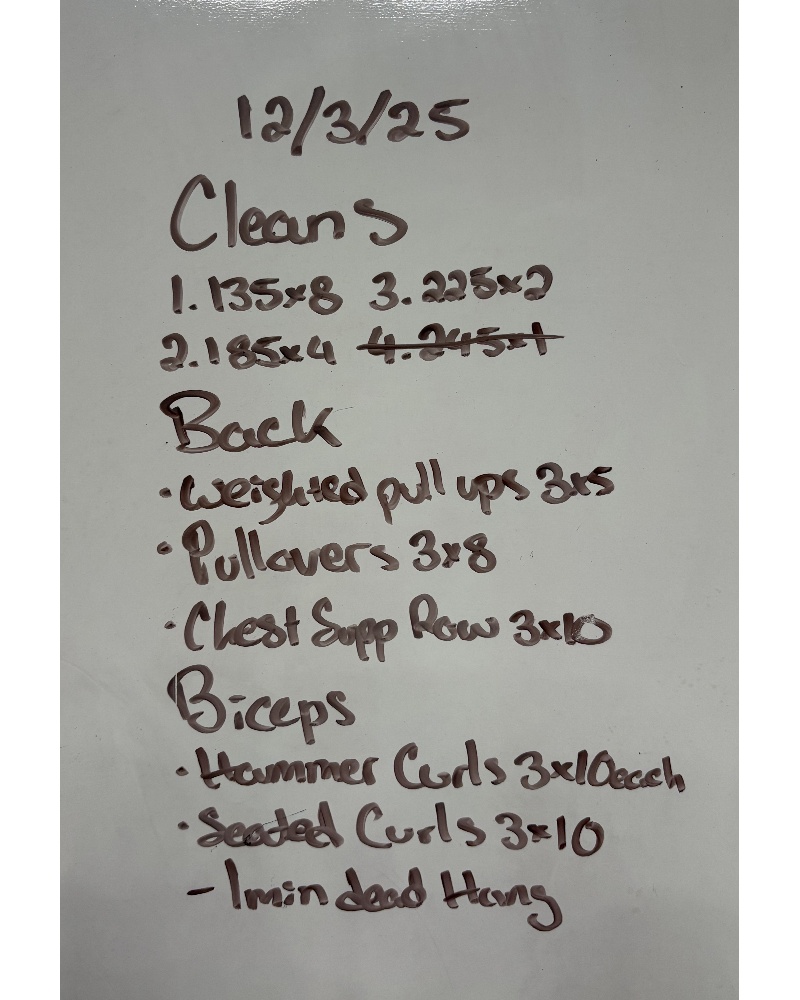 12/3/25
Cleans
1. 135x8 3. 225x2
2. 185x4 4. 245x1
Back
· weighted pull ups 3x5
· Pullovers 3x8
· Chest Supp Row 3x10
Biceps
· Hammer Curls 3x10each
· Seated Curls 3x10
- 1min dead Hang